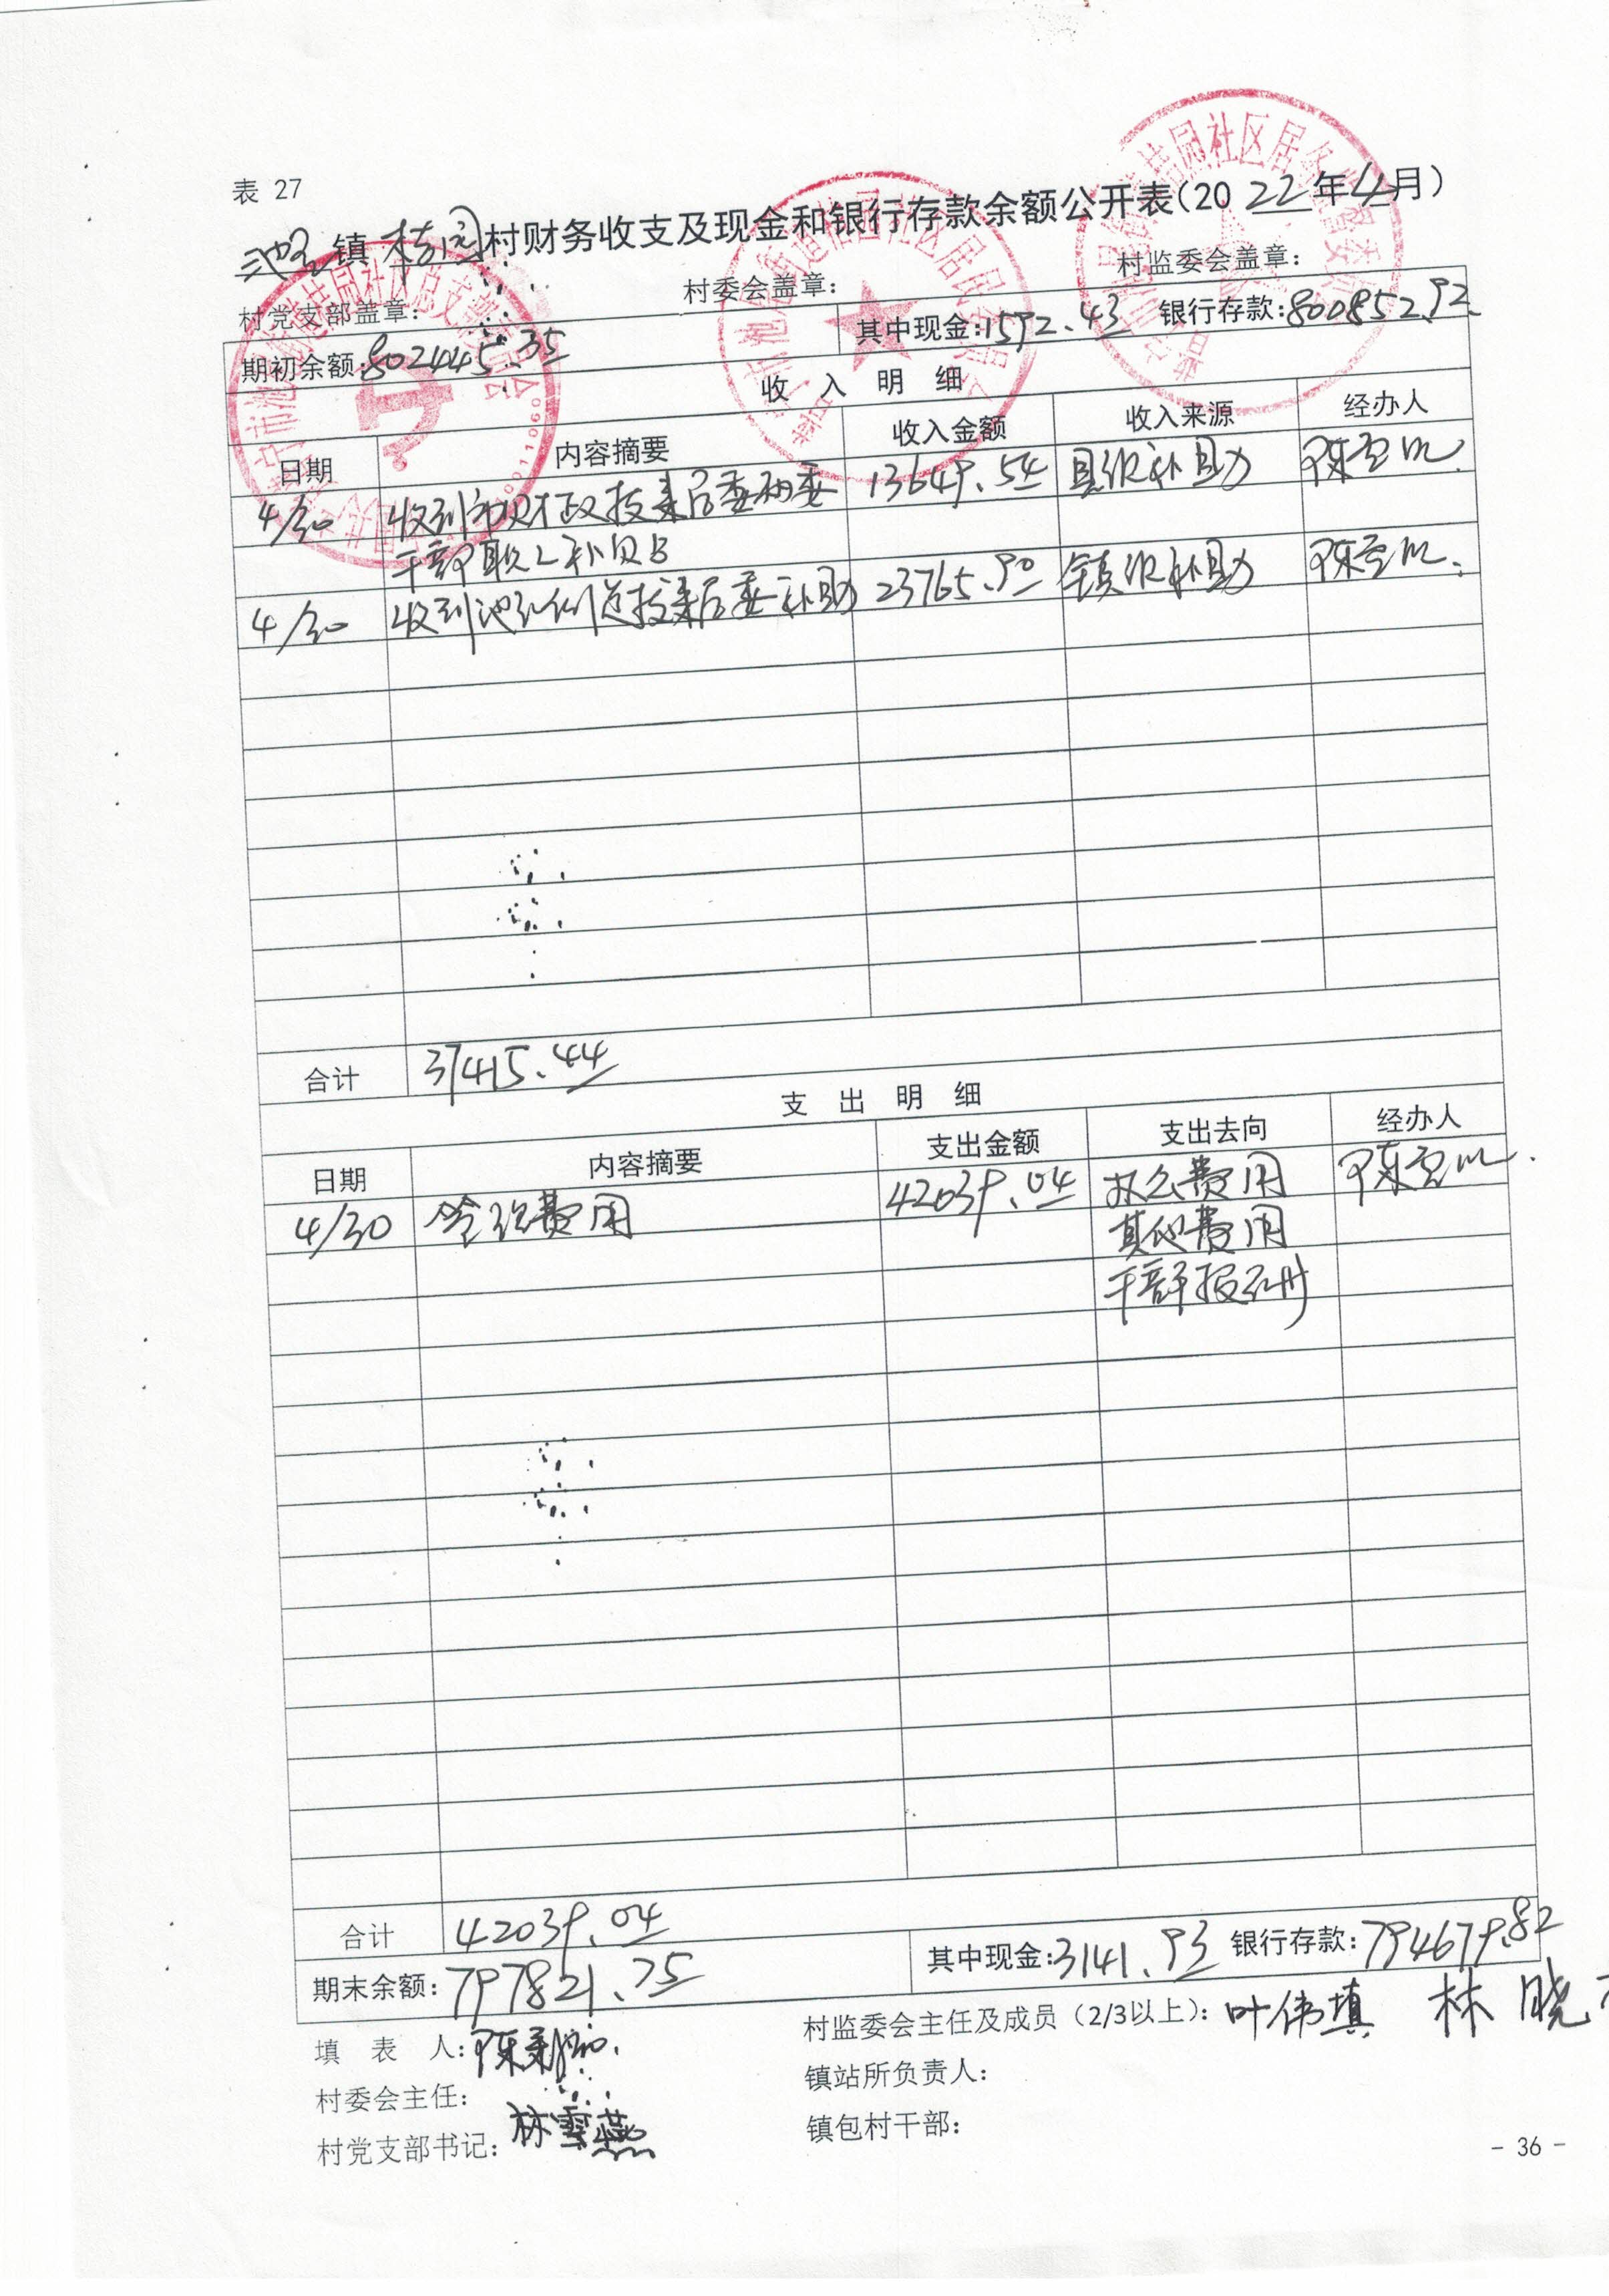 表 27
池店镇桂园村财务收支及现金和银行存款余额公开表(2022年4月)
村党支部盖章: 村委会盖章: 村监委会盖章:
期初余额:802445.35 其中现金:1592.43 银行存款:800852.92
收 入 明 细
日期 内容摘要 收入金额 收入来源 经办人
4/30 收到市财政拨来居委两委 13649.54 县级补助
干部职工补贴
4/30 收到池店街道拨来居委补助 23765.90 镇级补助
合计 37415.44
支 出 明 细
日期 内容摘要 支出金额 支出去向 经办人
4/30 管理费用 42039.04 办公费用
其他费用
干部报酬
合计 42039.04
期末余额:797821.75 其中现金:3141.93 银行存款:794679.82
填 表 人:
村监委会主任及成员(2/3以上): 叶伟填 林晓
村委会主任:
镇站所负责人:
村党支部书记: 林雪燕
镇包村干部:
- 36 -